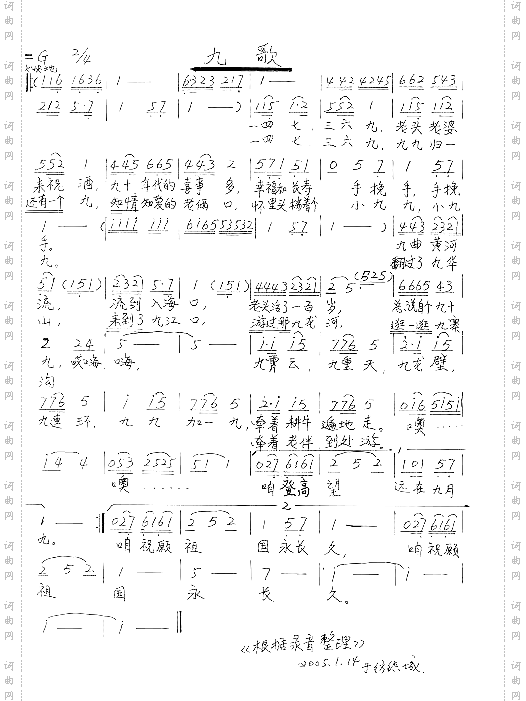 =G 2/4 九歌
(116 1636 | 1 — | 6323 217 | 1 — | 442 4245 | 662 543
212 5·7 | 1 57 | 1 — ) | 115 1·2 | 552 1 | 115 112
一四七, 三六九, 老头 老婆
一四七, 三六九, 九九归一
552 1 | 445 665 | 443 2 | 571 51 | 0 5 7 | 1 57
来祝酒, 九十年代的喜事多, 幸福和长寿 手挽手, 手挽
还有一个九, 知情知爱的老俩口, 怀里头揣着个 小九九, 小九
1 — ( | 1111 111 | 6165 53532 | 1 57 | 1 — ) | 443 2321
手。 九曲黄河
九。 翻过了九华
51 (151) | 2321 5·7 | 1 (151) | 4443 2321 | 2 5 (525) | 6665 43
流, 流到入海口, 老头活了一百岁, 总说自个九十
山, 来到了九江口, 游过那九龙河, 逛一逛九寨
2 24 | 5 — | 5 — | 1·1 15 | 776 5 | 2·1 15
九, 哎嗨嗨, 九霄云, 九重天, 九龙壁,
沟
776 5 | 1 15 | 776 5 | 2·1 15 | 776 5 | 016 5151
九连环, 九九加一九, 牵着耕牛遍地走。 噢……
牵着老伴到处游。
1 4 4 | 053 2525 | 51 1 | 027 6161 | 2 5 2 | 101 57
噢…… 咱登高望 远在九月
2
1 — :‖ 027 6161 | 2 5 2 | 1 57 | 1 — | 027 6161
九。 咱祝愿祖国永长久, 咱祝愿
2 5 2 | 1 — | 5 — | 7 — | 1 — | 1 —
祖国永长久。
1 — | 1 — ‖
《根据录音整理》
2005.1.14
词曲网
词曲网
词曲网
词曲网
词曲网
词曲网
词曲网
词曲网
词曲网
词曲网
词曲网
词曲网
词曲网
词曲网